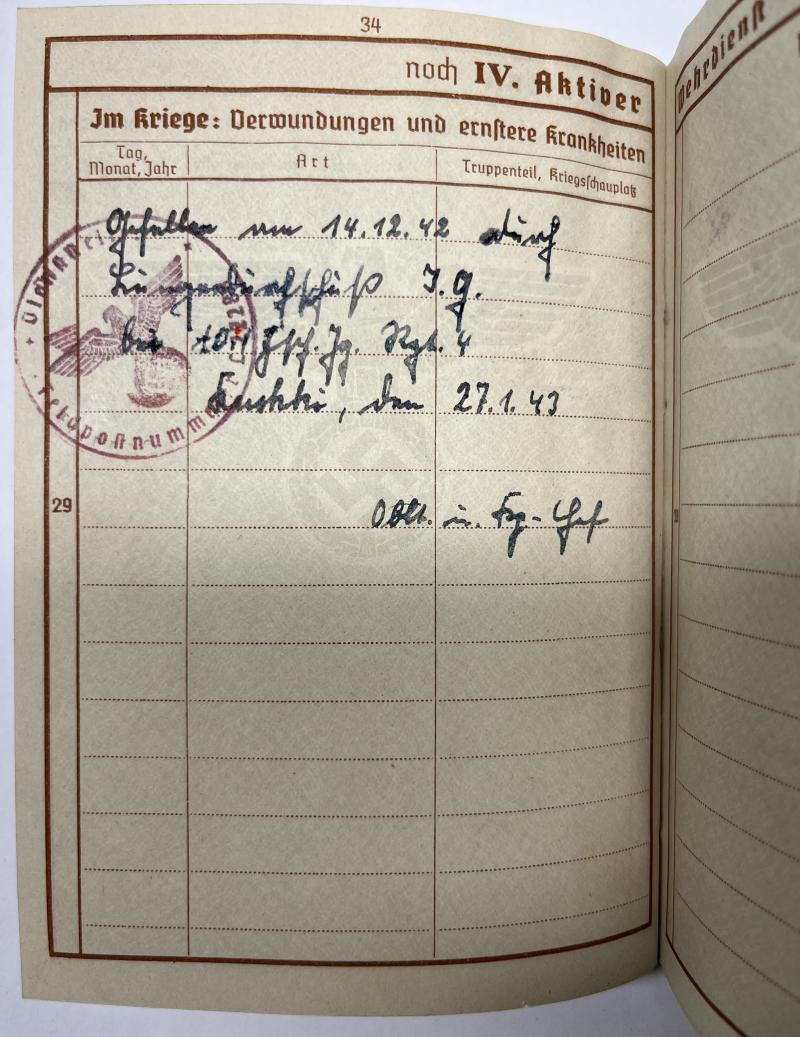 34
noch IV. Aktiver
Wehrdienst
Im Kriege: Verwundungen und ernstere Krankheiten
Tag, Monat, Jahr
Art
Truppenteil, Kriegsschauplatz
Gefallen am 14.12.42 durch
Lungendurchschuß I.G.
bei Fsch. Jg. Rgt. 4
den 27.1.43
29
Oblt. u. Chef
Dienststelle
Feldpostnummer